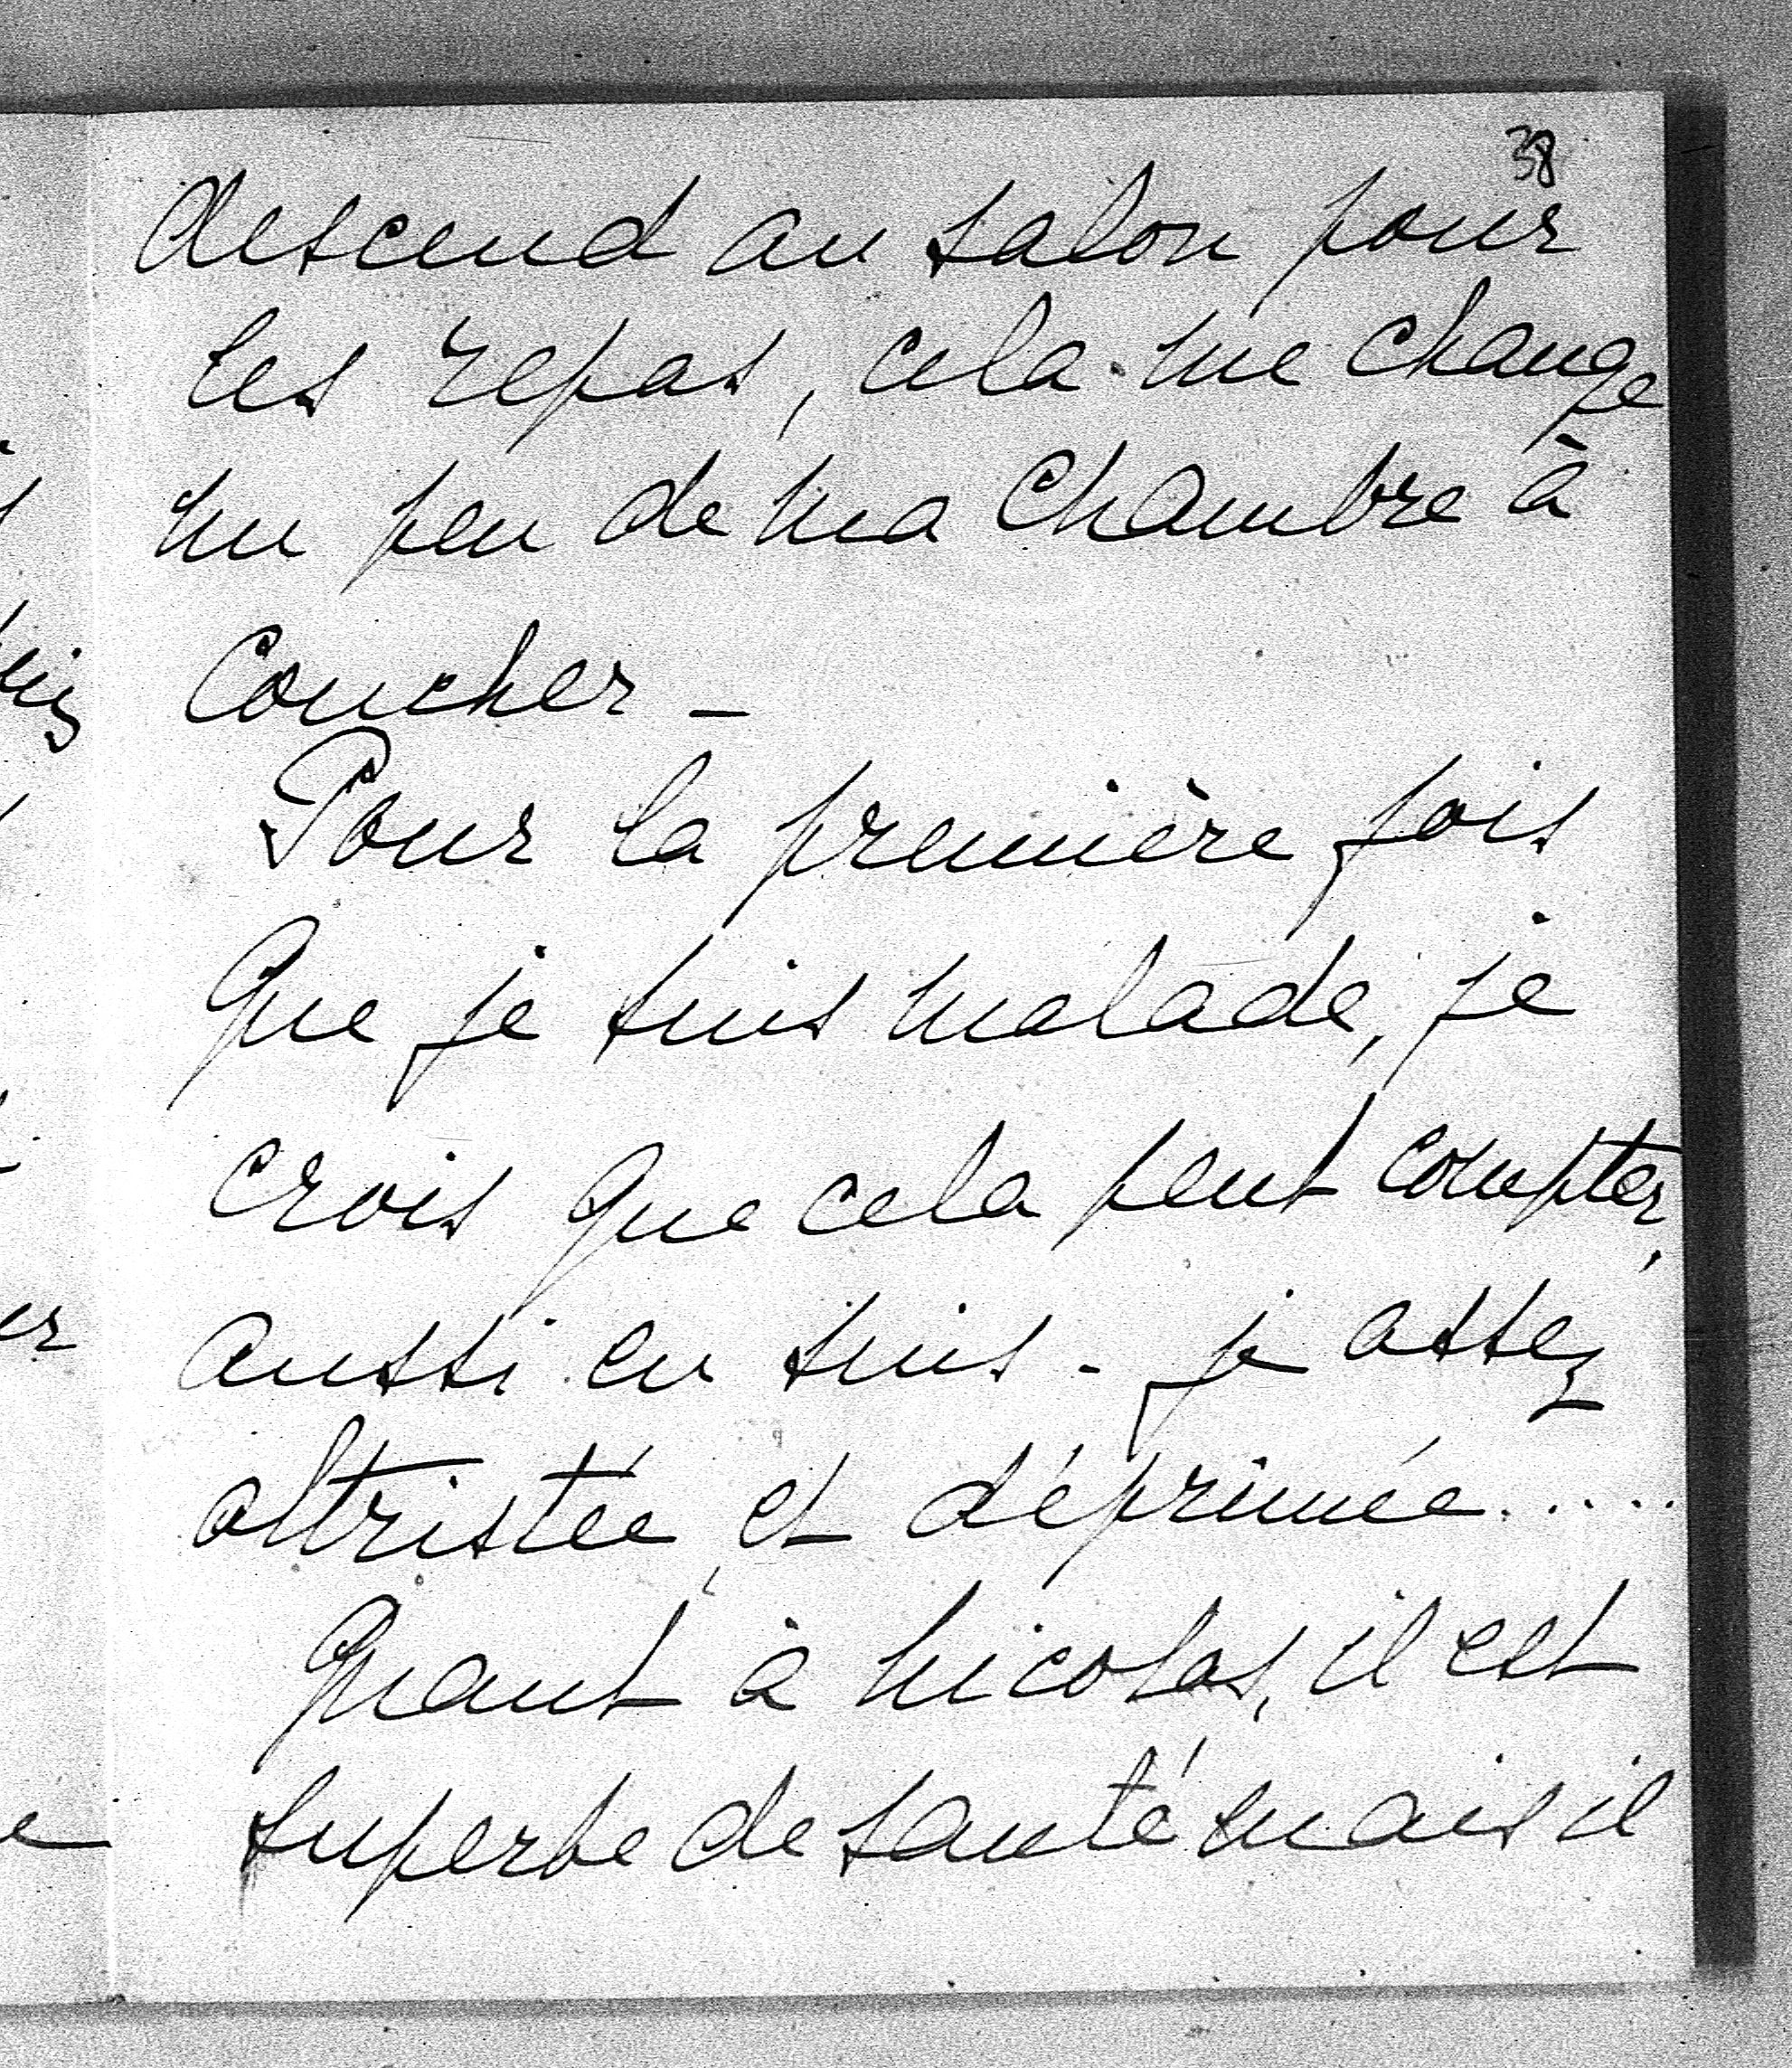 38
descend au salon pour
les repas, cela me change
un peu de ma chambre à
coucher -
Pour la première fois
que je suis malade, je
crois que cela peut compter,
aussi en suis - je assez
attristée et déprimée.....
Quant à Nicolas, il est
superbe de santé mais il